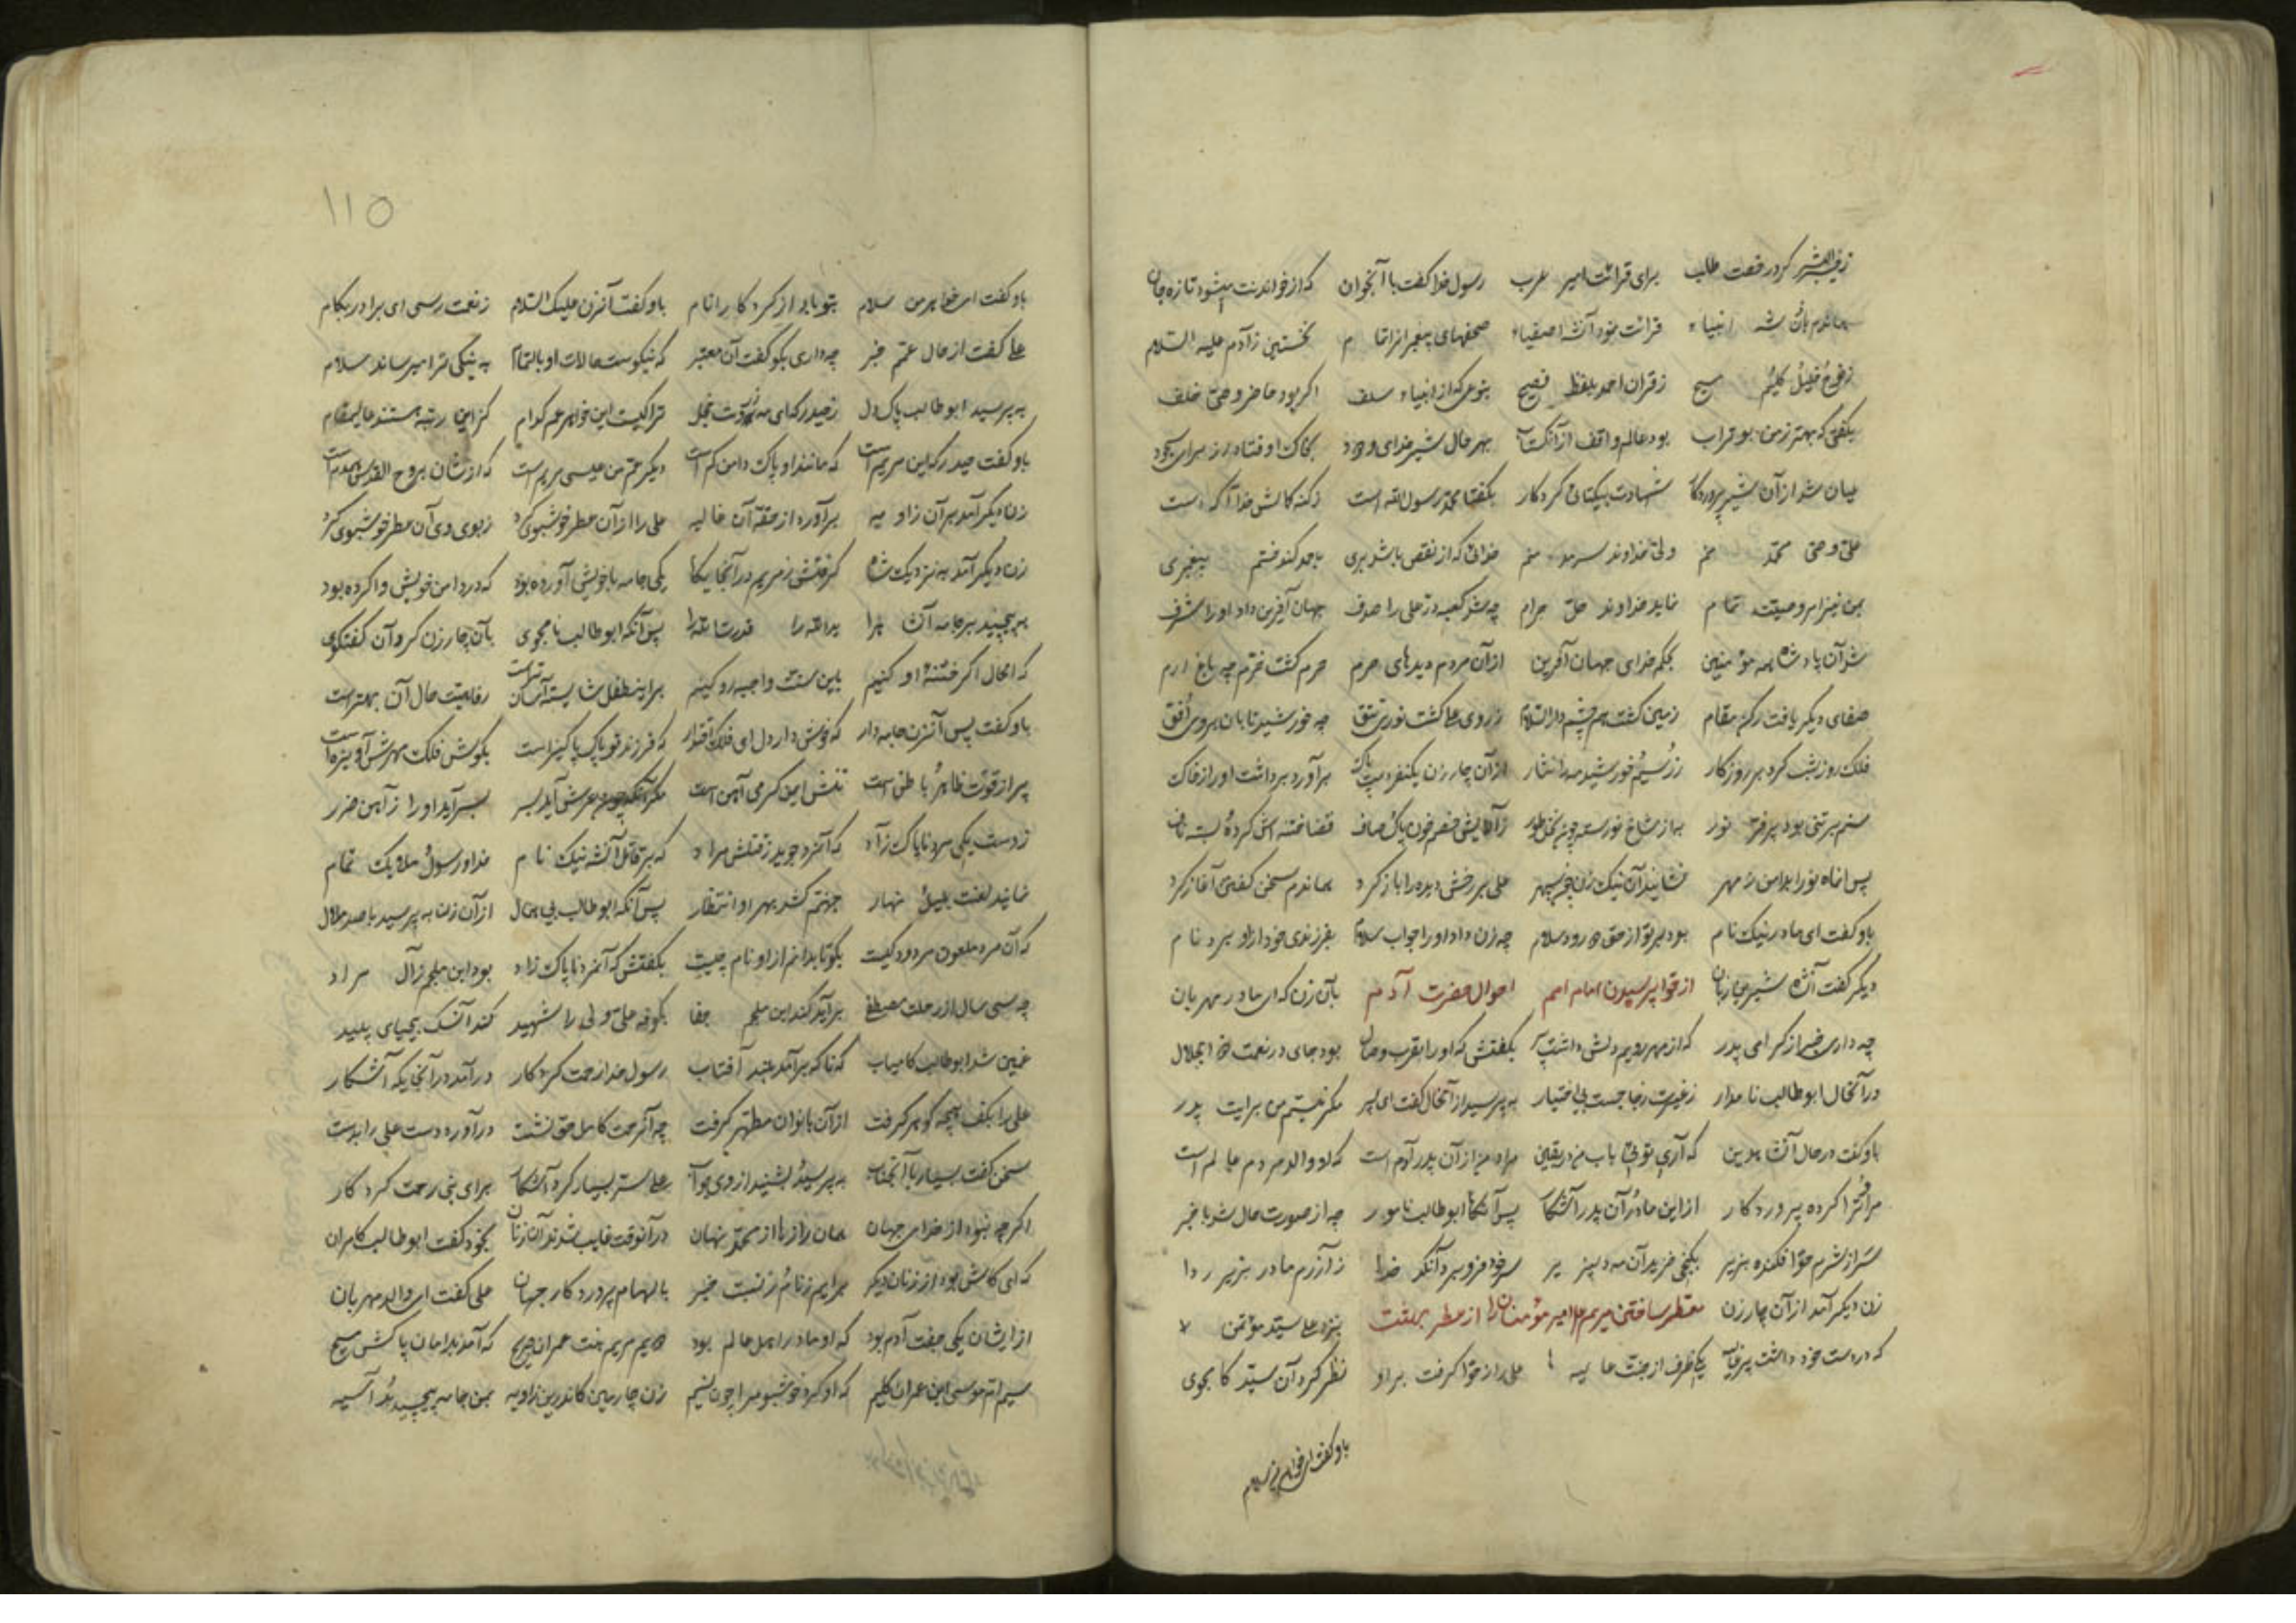 برای قرائت امیر عرب رسول خدا گفت با آنجوان که از خواندنت میشود تازه جان
شه انبیاء قرائت نمود آنشه اصفیاء صحفهای پیغمبران تمام نخستین ز آدم علیه السلام
مسیح ز قران احمد بلفظ فصیح بنوعی که از انبیاء سلف اگر بود حاضر وصی خلف
بگفتی که بهتر ز من بو تراب بود عالم و واقف از آن کتاب بهر حال شیر خدای ودود بخاک اوفتاد از برای سجود
عیان شد از آن شیر پروردگار شهادت بیکتائی کردگار بگفتا محمد رسول الله است ز کنه کمالش خدا آگه است
علی وصی محمد منم ولی خداوند سرمد منم خدائی که از نقص باشد بری باحمد کند ختم پیغمبری
بمن نیز امر وصیت تمام نماید خداوند حل حرام چه شد کعبه در علی را صدف جهان آفرین داد او را شرف
شد آن پادشاه همه مؤمنین بحکم خدای جهان آفرین از آن مردم دیدهای حرم حرم گشت خرم چه باغ ارم
صفای دیگر یافت رکن مقام زمین گشت هم چشم دار السلام ز روی علی گشت نور تتق چه خورشید تابان بروی افق
فلک روز شب کرد بر روزگار زر سیم خورشید مه را نثار از آن چار زن یکنفر دست پاک برآورد برداشت او را ز خاک
پس انماه نو را بدامن ز مهر نشانید آن نیک زن چون سپهر علی بر رخش دیده را باز کرد هماندم سخن گفتن آغاز کرد
باو گفت ای مادر نیک نام بود بر تو از حق درود سلام چه زن داد او را جواب سلام بفرزندی خود از او برد نام
دیگر گفت آنشه شیرین زبان از حوا پرسیدن امام امم احوال حضرت آدم بآن زن که ای مادر مهربان
چه داری خبر از گرامی پدر که از مهر رویم دلش داشت بگفتش که او را بقرب وصال بود جای در نعمت ذو الجلال
در آنحال ابو طالب نامدار ز غیرت ز جا جست بی اختیار به پرسید از آنحال گفت ای پسر مگر نیستم من برایت پدر
باو گفت در حال آنشاه دین که آری توئی باب من در یقین مراد من از آن پدر آدم است که او والد مردم عالم است
مرا و ترا کرده پروردگار از این مادر آن پدر آشکار پس آنگاه ابو طالب نامور چه از صورت حال شد با خبر
سر از شرم حوا فکنده بزیر بکنجی خزید آن مه دلپذیر سر خود فرو برد آنگه ز آزرم مادر بزیر ردا
زن دیگر آمد از آن چار زن معطر ساختن مریم امیر مؤمنان را از عطر بهشت بنزد علی سید مؤتمن
که در دست خود داشت یک ظرف از جنت عالیه علی را ز حوا گرفت بر او نظر کرد آن سید کامجوی
باو گفت ای خواهر من سلام
۱۱۵
باو گفت ای خواهر من سلام بتو باد از کردگار انام باو گفت آنزن علیک السلام ز نعمت رسی ای برادر بکام
علی گفت از حال عمم خبر چه داری بگو گفت آن معتبر که نیکوست حالات او بالتمام به نیکی ترا میرساند سلام
به پرسید ابو طالب پاک دل ز حیدر که ای مه ز رویت خجل ترا کیست این خواهر عم کدام کز اینها رتبه هستند عالیمقام
باو گفت حیدر که این مریم است که مانند او پاک دامن کم است دیگر عم من عیسی مریم است که از شان بروح القدس همدم است
زن دیگر آمد بر آن زاویه برآورد از حقه آن غالیه علی را از آن عطر خوشبوی کرد ز بوی وی آن عطر خوشبوی کرد
زن دیگر آمد به نزدیک شاه گرفتش ز مریم در آنجایگاه یکی جامه با خویش آورده بود که در دامن خویش وا کرده بود
بپیچید بر جامه آن پس آنگه ابو طالب نامجوی بآن چار زن کرد آن گفتگوی
که الحال اگر ختنه او کنیم باین سنت واجبه رو کنیم بر این طفل شایسته آسانتر است رفاهیت حال آن بهتر است
باو گفت پس آنزن جامه دار که خوش دار دل ای فلک اقتدار که فرزند تو پاک پاکیزه است بگوش فلک مهرش آویزه است
پر از قوت ظاهر باطن است تنش ایمن از گرمی آهن است مگر آنکه چون عمرش آید بسر بسر آید او را ز آهن ضرر
ز دست یکی مرد ناپاک زاد که آنمرد جوید ز قتلش مراد که بر قاتل آنشه نیک نام خدا و رسول ملایک تمام
نمایند لعنت بلیل نهار جهنم کشد بهر او انتظار پس آنگه ابو طالب بی همال از آن زن به پرسید با صد ملال
که آن مرد ملعون مردود کیست بگو تا بدانم از او نام چیست بگفتش که آنمرد ناپاک زاد بود ابن ملجم ز آل مراد
چه سی سال از رحلت مصطفی برآید کند ابن ملجم جفا بکوفه علی ولی را شهید کند آنسگ بیحیای پلید
غمین شد ابو طالب کامیاب که ناگه برآمد بلند آفتاب رسول خدا رحمت کردگار درآمد در آنجایگه آشکار
علی را بکف همچه گوهر گرفت از آن بانوان مطهر گرفت چه آنرحمت کامل حق نشست درآورد دست علی را بدست
سخن گفت بسیار با آنجناب به پرسید بشنید از وی جواب علی ستر بسیار کرد آشکار برای نبی رحمت کردگار
اگر چه نبود از خدای جهان همان رازها از محمد نهان در آنوقت غایب شدند آن زنان بخود گفت ابو طالب کامران
که ای کاش بود از زنان دیگر مرا هم ز نام ز نسبت خبر بالهام پروردگار جهان علی گفت ای والد مهربان
از ایشان یکی جفت آدم بود که او مادر اهل عالم بود دویم مریم بنت عمران که آمد بدامان پاکش مسیح
سیم ام موسی ابن عمران کلیم که او کرد خوشبو مرا چون نسیم زن چارمین کاندرین زاویه بمن جامه پیچید بد آسیه